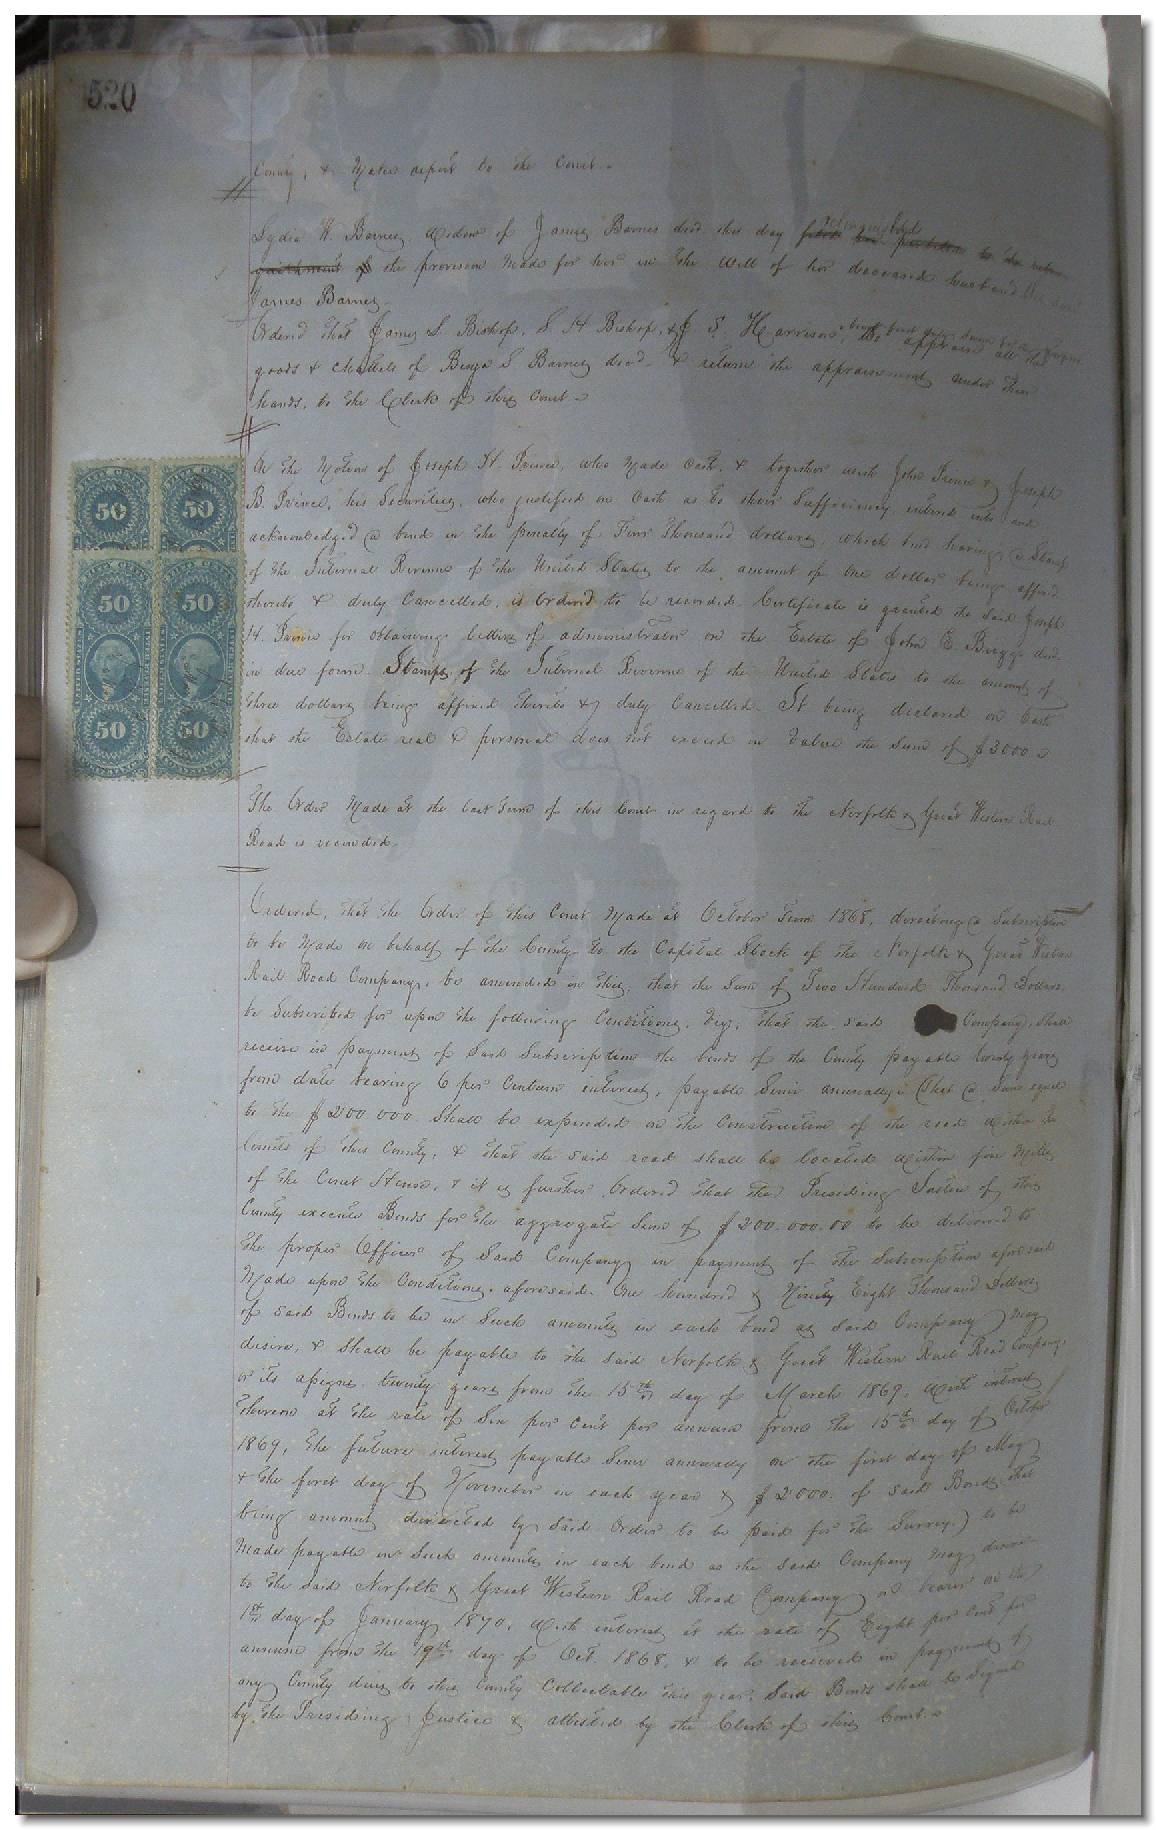 520
County, & Make report to the Court.
Lydia W. Barnes, widow of James Barnes decd. this day relinquished
the provision Made for her in the Will of her deceased husband
James Barnes.
Ordered that James S. Bishop, S. H Bishop, & J S. Harrison, appraise all the
goods & chattels of Benja S Barnes decd. & return the appraisement under their
hands, to the Clerk of this Court
On the Motion of Joseph H. Prince, who Made Oath, & together with John Prince & Joseph
B. Prince, his Securities, who justified on Oath as to their Sufficiency, entered into and
acknowledged a bond in the penalty of Four Thousand dollars, which bond having a Stamp
of the Internal Revenue of the United States to the amount of One dollar being affixed
thereto & duly Cancelled, is Ordered to be recorded. Certificate is granted the Said Joseph
H. Prince for obtaining letters of administration on the Estate of John E. Briggs decd.
in due form. Stamps of the Internal Revenue of the United States to the amount of
three dollars being affixed thereto & duly Cancelled. It being declared on Oath
that the Estate real & personal does not exceed in Value the Sum of $3000
50
50
50
50
50
50
The Order Made at the last Term of this Court in regard to the Norfolk & Great Western Rail
Road is rescinded.
Ordered, that the Order of this Court Made at October Term 1868, directing a Subscription
to be Made on behalf of the County to the Capital Stock of the Norfolk & Great Western
Rail Road Company, be amended in this, that the Sum of Two Hundred Thousand Dollars,
be Subscribed for upon the following Conditions, Viz, that the said Company, shall
receive in payment of Said Subscription the bonds of the County payable twenty years
from date bearing 6 per Centum interest, payable Semi annually; That a Sum equal
to the $200 000. Shall be expended on the Construction of the road within the
limits of this County, & that the said road shall be located within five Miles
of the Court House, & it is further Ordered that the Presiding Justice of this
County execute Bonds for the aggregate Sum of $200.000.00 to be delivered to
the proper Officer of Said Company in payment of the Subscription aforesaid
Made upon the Conditions aforesaid. One hundred & Ninety Eight Thousand Dollars
of said Bonds to be in Such amounts in each bond as Said Company may
desire, & shall be payable to the said Norfolk & Great Western Rail Road Company
or its assigns twenty years from the 15th day of March 1869, with interest
thereon at the rate of Six per cent per annum from the 15th day of October
1869, the future interest payable Semi annually on the first day of May
& the first day of November in each year & $2000. of said Bonds, that
being amount directed by Said Order to be paid for the Survey,) to be
Made payable in Such amounts in each bond as the said Company May desire
to the said Norfolk & Great Western Rail Road Company or bearer on the
1st day of January 1870, with interest at the rate of Eight per Cent per
annum from the 19th day of Oct. 1868, & to be received in payment of
any County dues to this County Collectable this year. Said Bonds shall be Signed
by the Presiding Justice & attested by the Clerk of this Court.